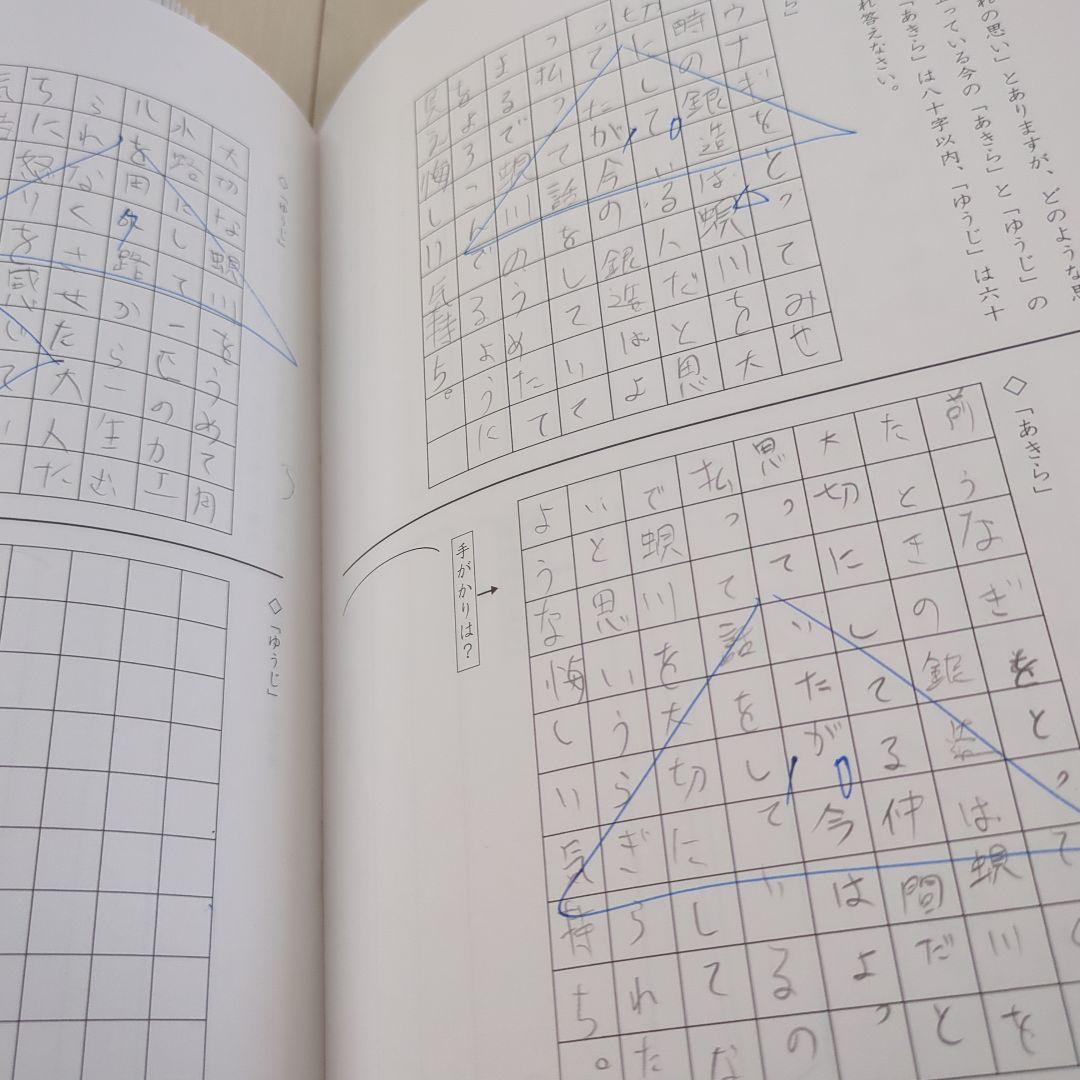 れの思い」とありますが、どのような思
っている今の「あきら」と「ゆうじ」の
「あきら」は八十字以内、「ゆうじ」は六十
れ答えなさい。
ら」
ウナギをとってみせ
時の銀造は蜆川を大
切にしている人だと思
ってたが今の銀造はよ
っ払って話をしていて
まるで蜆川のうめたて
をよろこんでるように
見え悔しい気持ち。
◇「あきら」
前うなぎをとって
たときの銀造は蜆川を
大切にしてる仲間だと
思っていたが今はよっ
払って話をしているの
で蜆川を大切にしてな
いと思いうらぎられた
ような悔しい気持ち。
10
10
手がかりは?
◇「ゆうじ」
大切な蜆川をうめて用
水路にして一匹の力工
ルを田
路から一生む
られなくさせた大人た
ちに怒りを感
◇「ゆうじ」